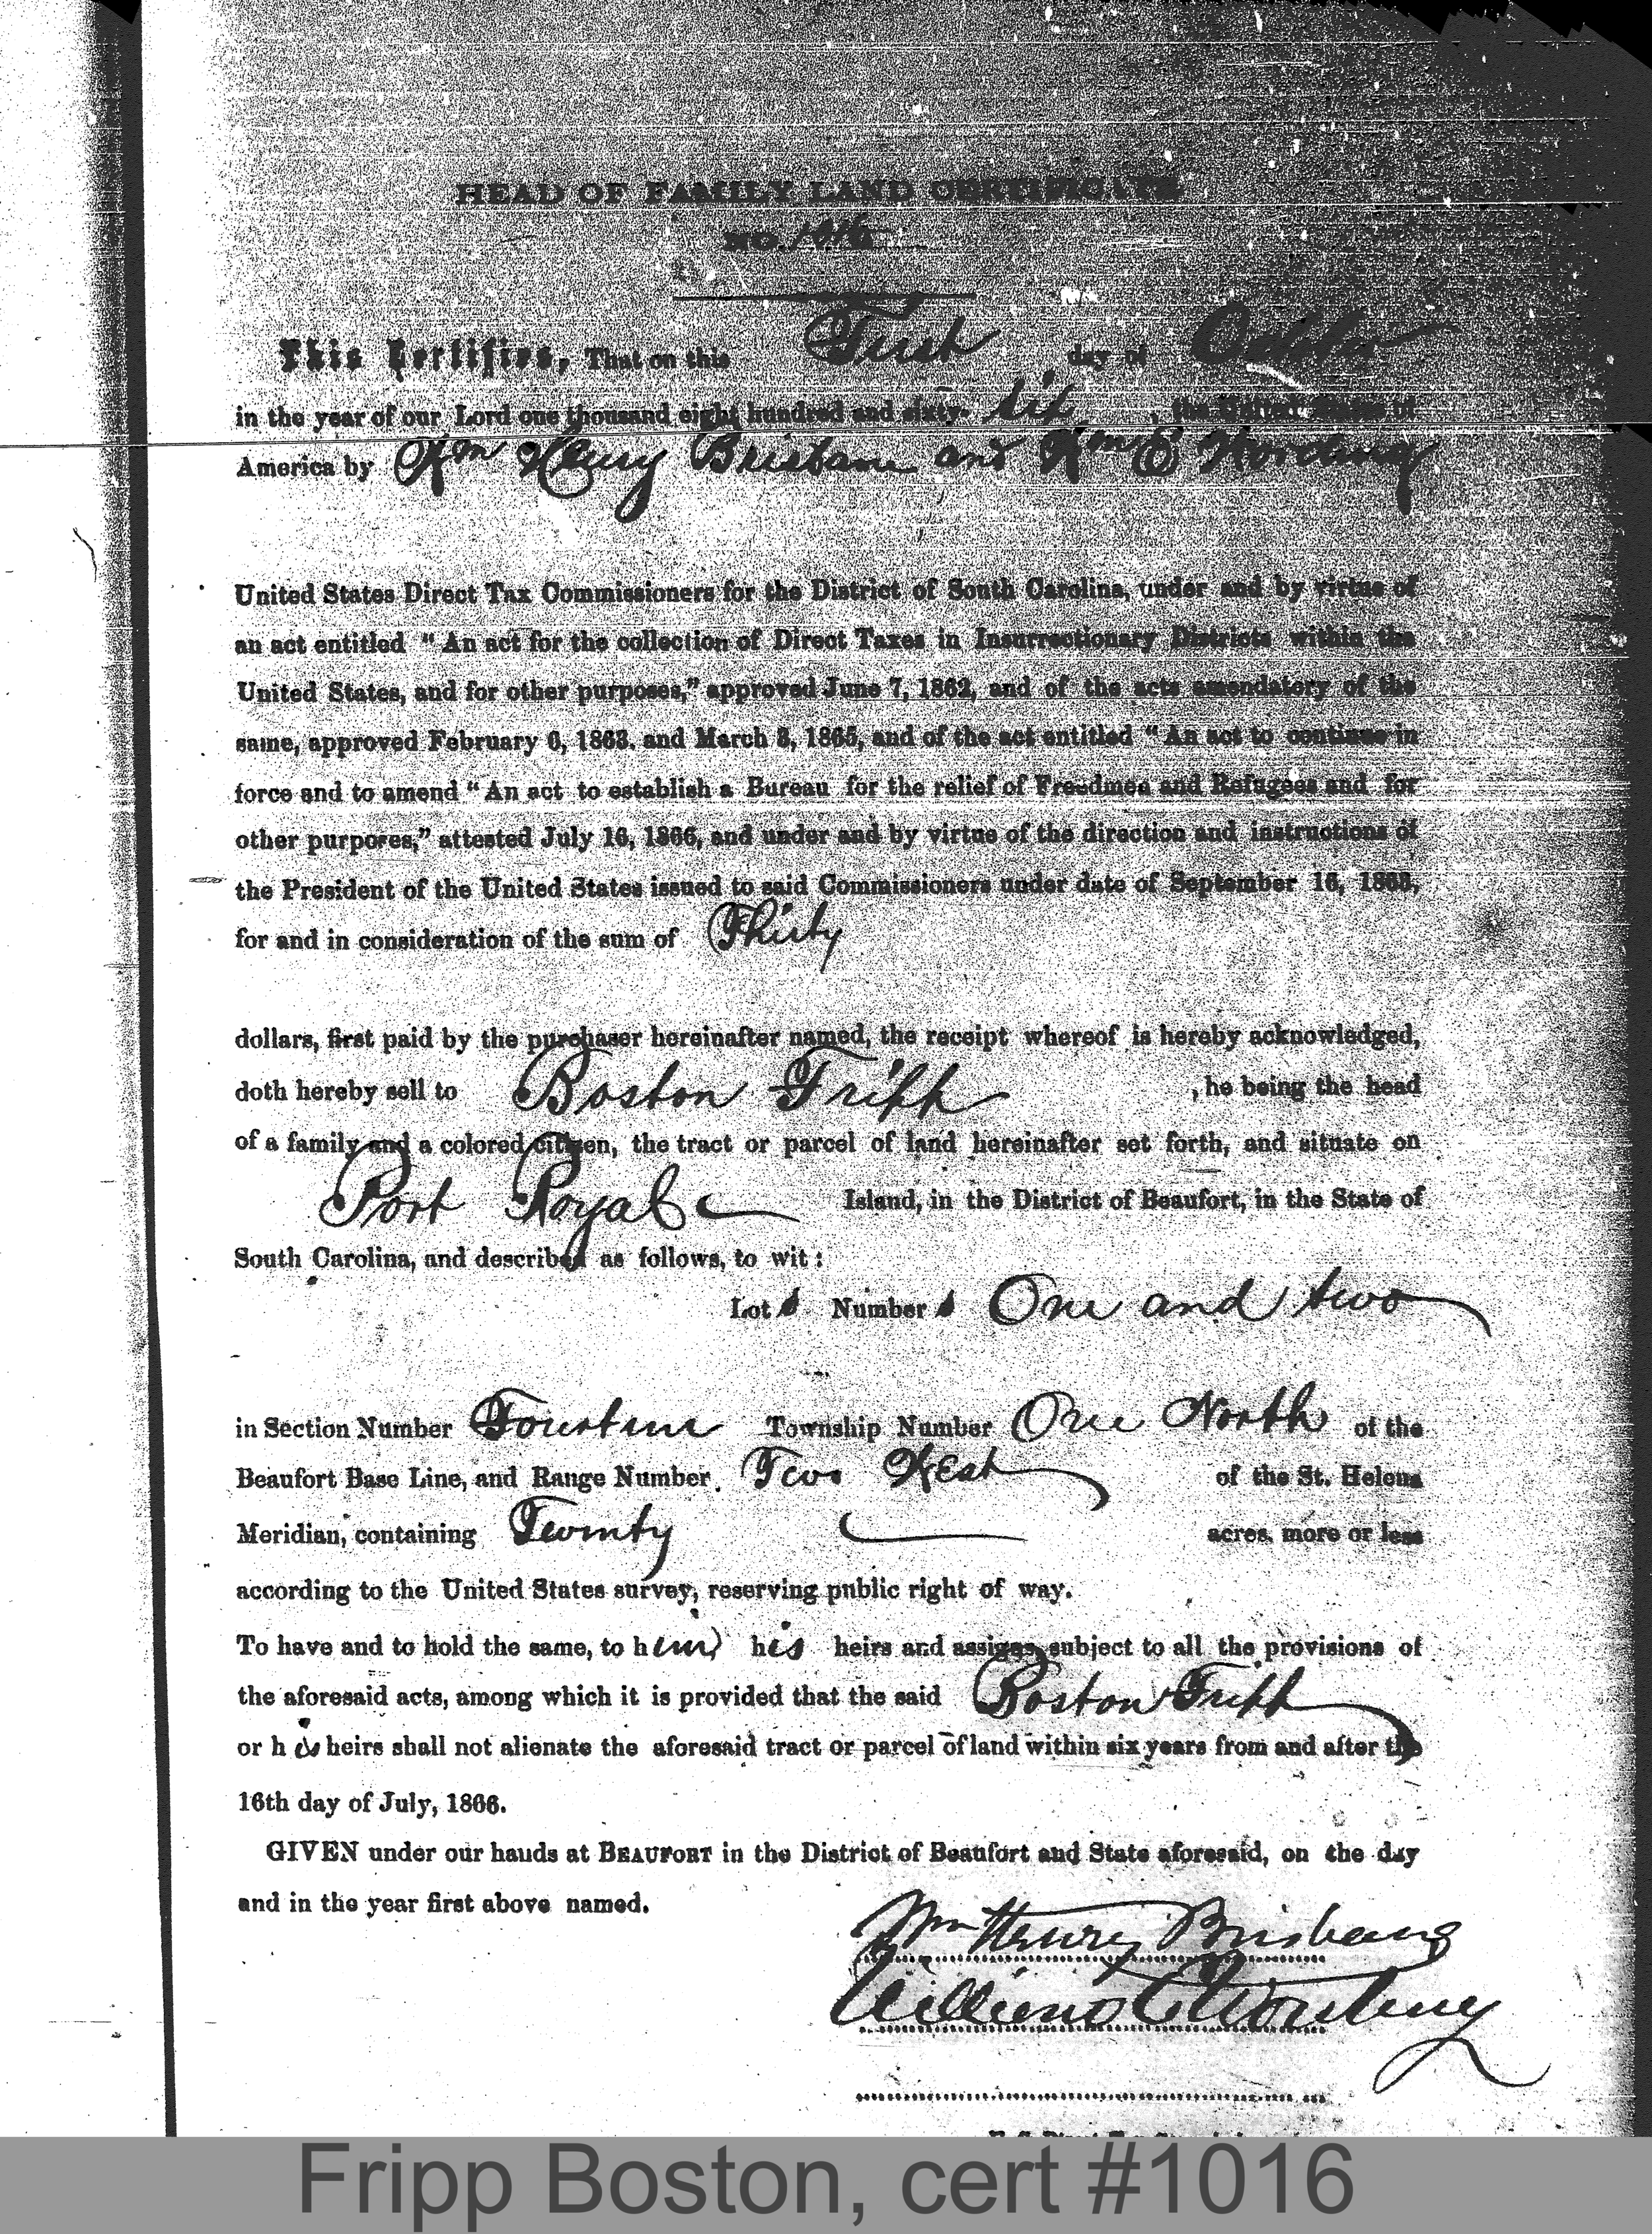 HEAD OF FAMILY LAND CERTIFICATE
NO. 1016
This Certifies, That on this First day of October
in the year of our Lord one thousand eight hundred and sixty- six , the United States of
America by Wm Henry Brisbane and Wm E Wording
United States Direct Tax Commissioners for the District of South Carolina, under and by virtue of
an act entitled “ An act for the collection of Direct Taxes in Insurrectionary Districts within the
United States, and for other purposes,” approved June 7, 1862, and of the acts amendatory of the
same, approved February 6, 1863. and March 3, 1865, and of the act entitled “ An act to continue in
force and to amend “ An act to establish a Bureau for the relief of Freedmen and Refugees and for
other purposes,” attested July 16, 1866, and under and by virtue of the direction and instructions of
the President of the United States issued to said Commissioners under date of September 16, 1863,
for and in consideration of the sum of Thirty
dollars, first paid by the purchaser hereinafter named, the receipt whereof is hereby acknowledged,
doth hereby sell to Boston Fripp , he being the head
of a family and a colored citizen, the tract or parcel of land hereinafter set forth, and situate on
Port Royal Island, in the District of Beaufort, in the State of
South Carolina, and described as follows, to wit :
Lots Numbers One and two
in Section Number Fourteen Township Number One North of the
Beaufort Base Line, and Range Number Two West of the St. Helena
Meridian, containing Twenty acres, more or less
according to the United States survey, reserving public right of way.
To have and to hold the same, to him his heirs and assigns, subject to all the provisions of
the aforesaid acts, among which it is provided that the said Boston Fripp
or his heirs shall not alienate the aforesaid tract or parcel of land within six years from and after the
16th day of July, 1866.
GIVEN under our hands at BEAUFORT in the District of Beaufort and State aforesaid, on the day
and in the year first above named.
Wm Henry Brisbane
William E Wording
Fripp Boston, cert #1016